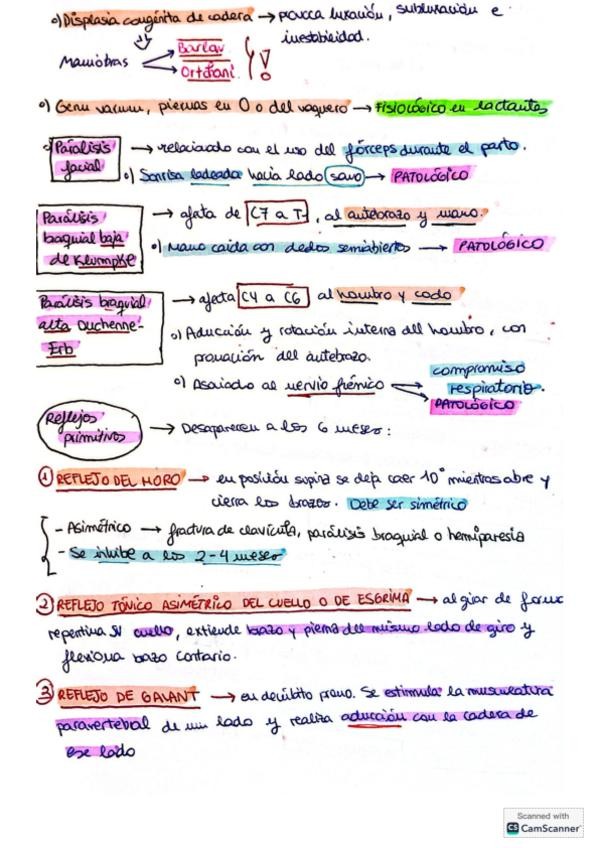 o) Displasia congénita de cadera → provoca luxación, subluxación e
inestabilidad.
Maniobras Barlow
Ortolani !
o) Genu varum, piernas en O o del vaquero → Fisiológico en lactantes
o) Parálisis facial → relacionado con el uso del fórceps durante el parto.
o) Sonrisa ladeada hacia lado sano → PATOLÓGICO
Parálisis baquial baja de Klumpke → afata de C7 a T1, al antebrazo y mano.
o) Mano caída con dedos semiabiertos → PATOLÓGICO
Parálisis braquial alta Duchenne-Erb → afecta C4 a C6 al hombro y codo
o) Aducción y rotación interna del hombro, con
pronación del antebrazo.
o) Asociado al nervio frénico compromiso respiratorio.
PATOLÓGICO
Reflejos primitivos → Desaparecen a los 6 meses:
① REFLEJO DEL MORO → en posición supina se deja caer 10° mientras abre y
cierra los brazos. Debe ser simétrico
- Asimétrico → fractura de clavícula, parálisis braquial o hemiparesia
- Se inhibe a los 2-4 meses
② REFLEJO TÓNICO ASIMÉTRICO DEL CUELLO O DE ESGRIMA → al girar de forma
repentina el cuello, extiende brazo y pierna del mismo lado de giro y
flexiona brazo contrario.
③ REFLEJO DE GALANT → en decúbito prono. Se estimula la musculatura
paravertebral de un lado y realiza aducción con la cadera de
ese lado
Scanned with
CS CamScanner